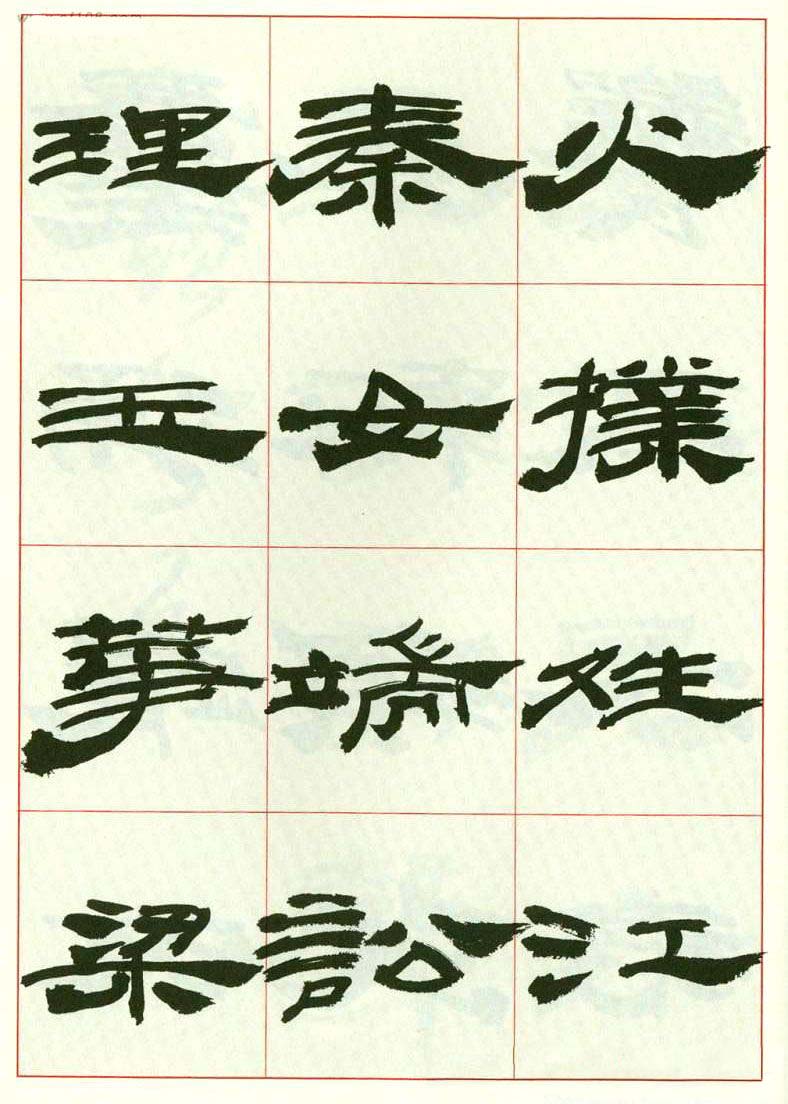 火撲姓江
秦女端訟
理玉華梁